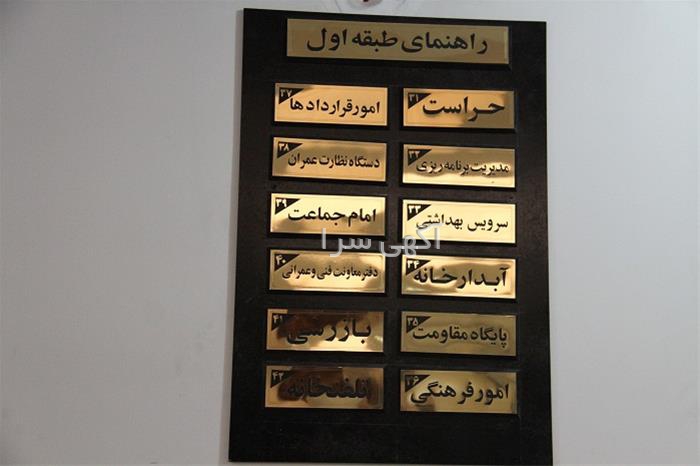 راهنمای طبقه اول
۳۱ حراست
۳۷ امور قراردادها
۳۲ مدیریت برنامه ریزی
۳۸ دستگاه نظارت عمران
۳۳ سرویس بهداشتی
۳۹ امام جماعت
آگهی سرا
۳۴ آبدارخانه
۴۰ دفتر معاونت فنی و عمرانی
۳۵ پایگاه مقاومت
۴۱ بازرسی
۳۶ امور فرهنگی
۴۲ تلفنخانه